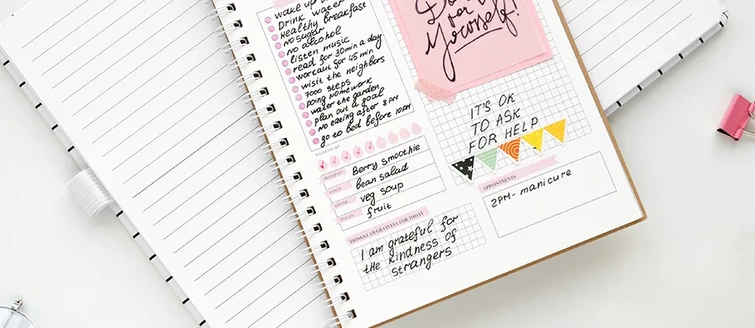 wake up
Drink water
Healthy breakfast
no sugar
no alcohol
listen music
read for 30min a day
workout for 45 min
visit the neighbors
7000 steps
doing homework
water the garden
plan out a goal
no eating after 8 PM
go to bed before 10PM
BREAKFAST Berry smoothie
bean salad
veg soup
fruit
THINGS I AM GRATEFUL FOR TODAY
I am grateful for
the kindness of
strangers
Yourself!
IT'S OK
TO ASK
FOR HELP
APPOINTMENTS
2PM- manicure